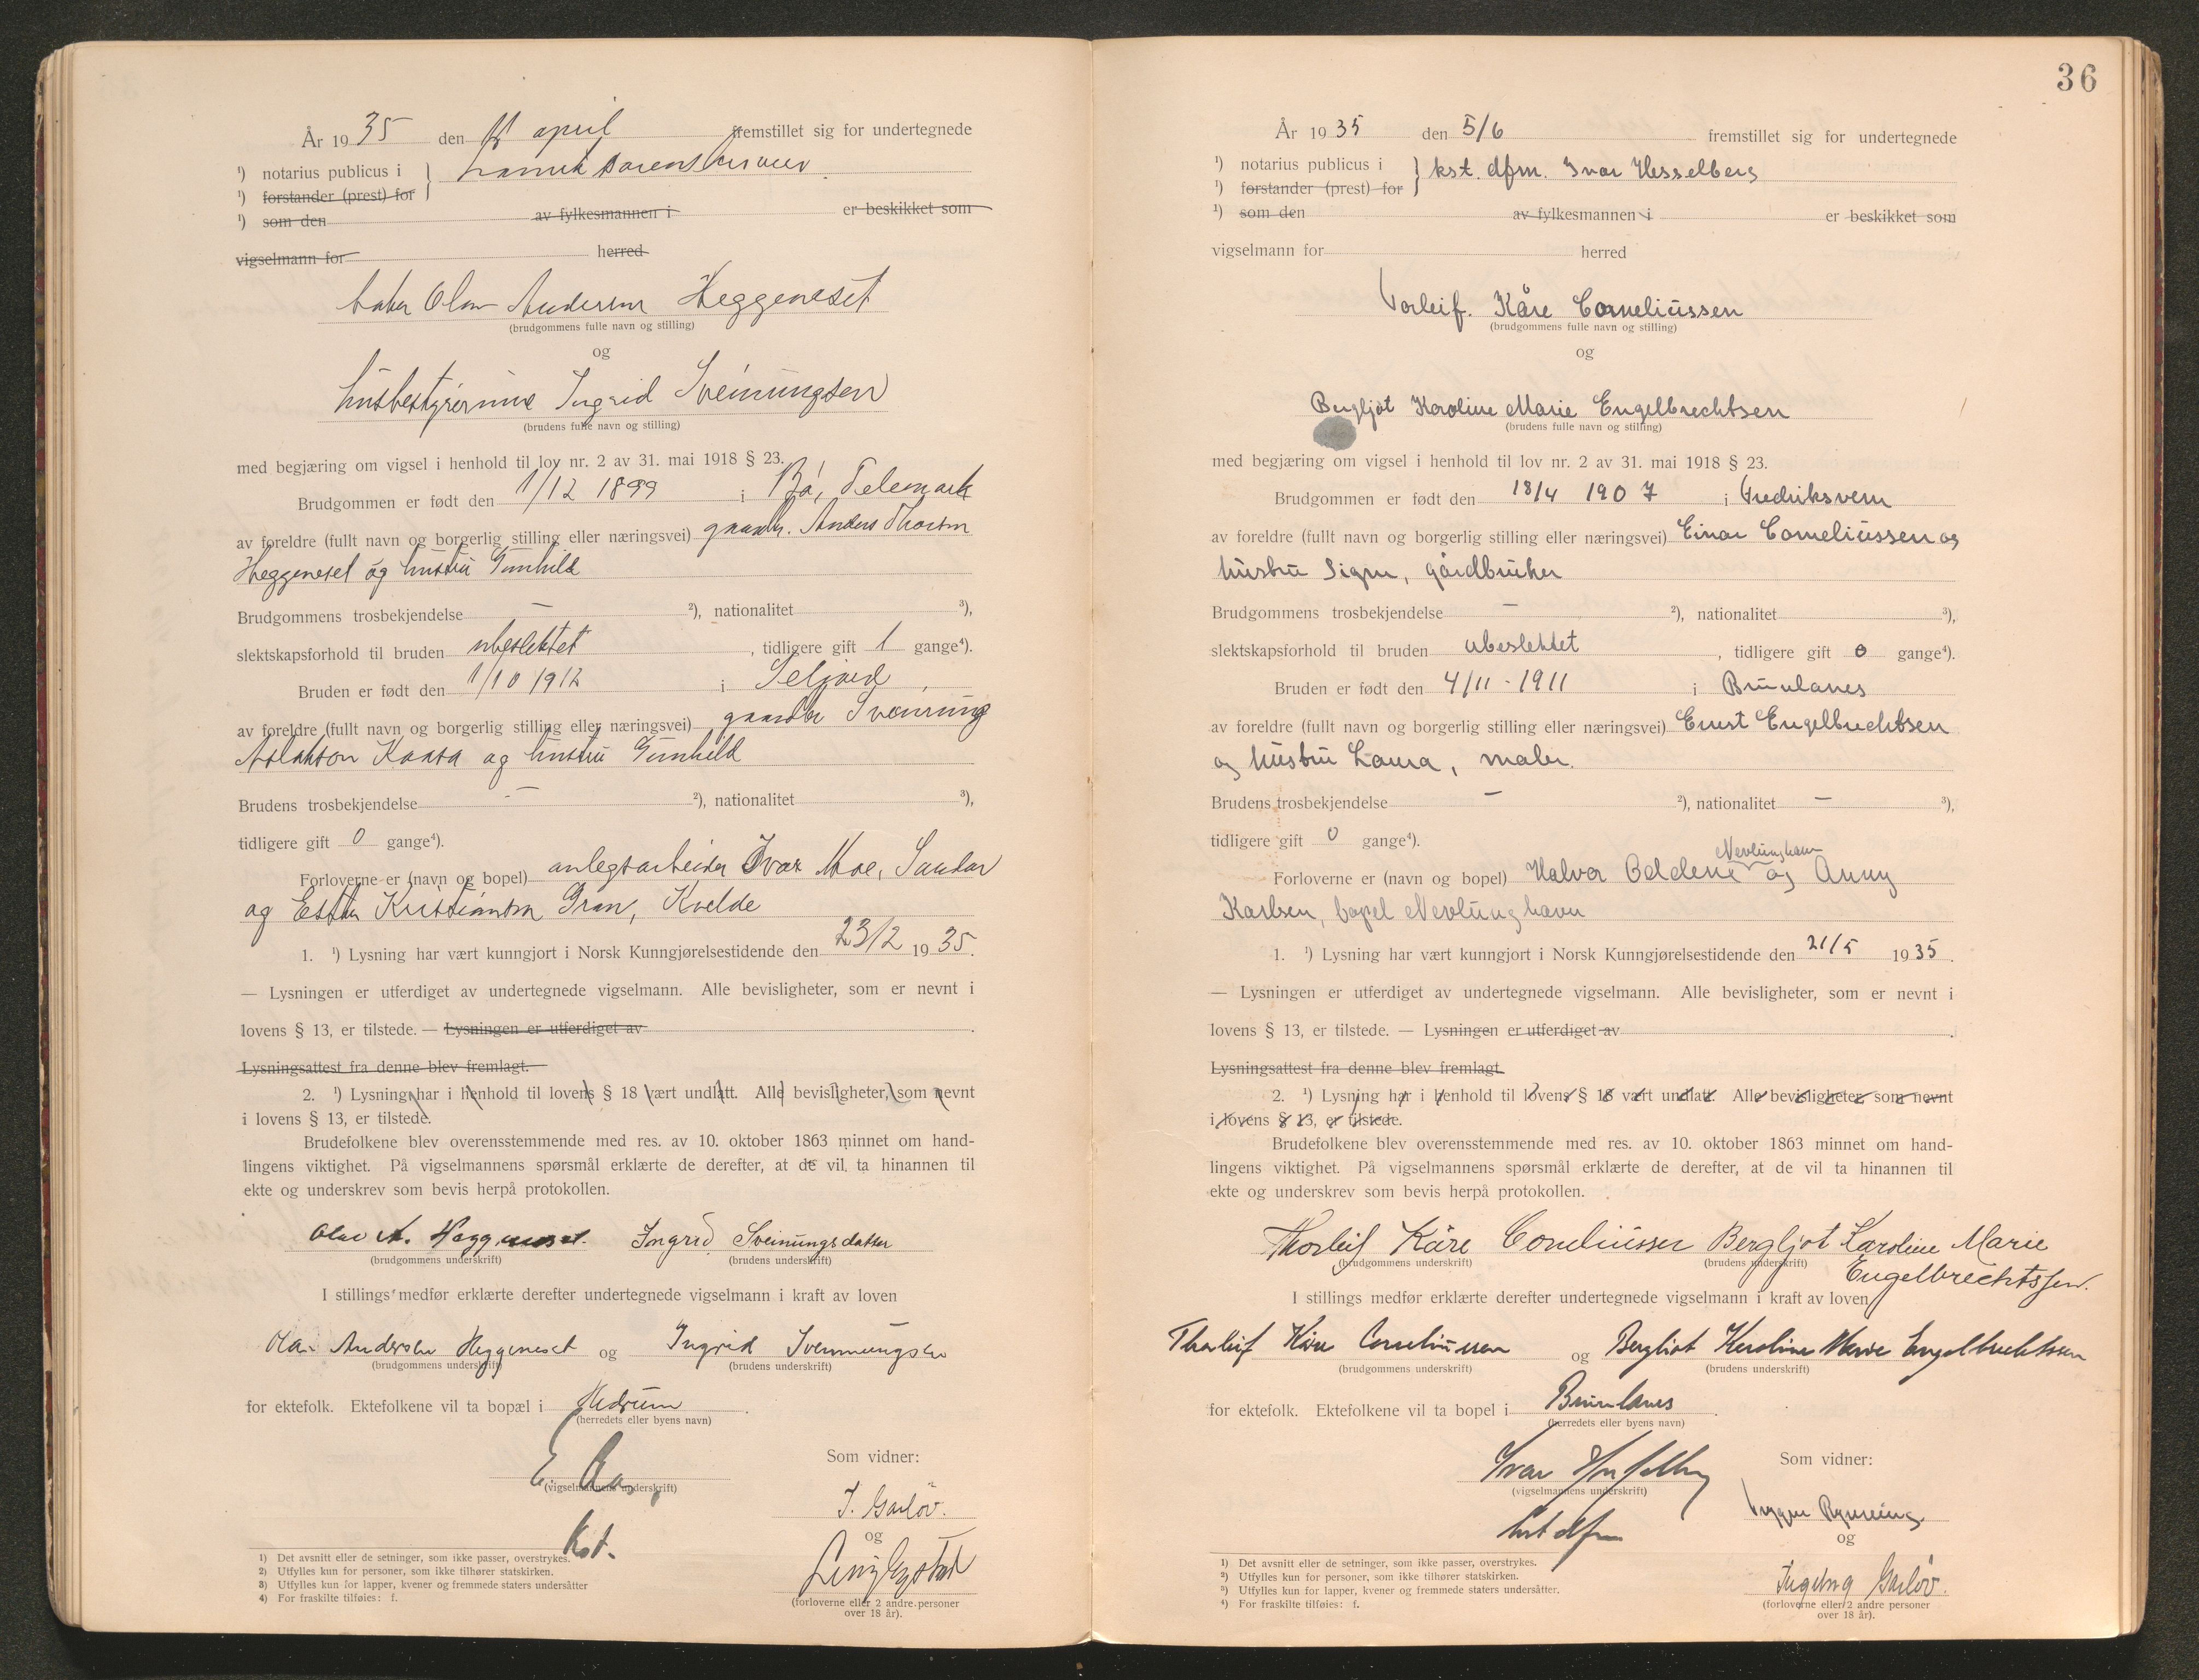 År 1935 den april fremstillet sig for undertegnede
¹) notarius publicus i
¹) forstander (prest) for
¹) som den av fylkesmannen i er beskikket som
vigselmann for herred
Olav Andersen Heggeneset
(brudgommens fulle navn og stilling)
og
husbestyrerinne Ingrid Sveinungsen
(brudens fulle navn og stilling)
med begjæring om vigsel i henhold til lov nr. 2 av 31. mai 1918 § 23.
Brudgommen er født den 1/12 1899 i Bø, Telemark
av foreldre (fullt navn og borgerlig stilling eller næringsvei) gaardbr. Anders Thorsen
Heggeneset og hustru Gunhild
Brudgommens trosbekjendelse — ²), nationalitet ³),
slektskapsforhold til bruden ubeslektet, tidligere gift 1 gange⁴).
Bruden er født den 1/10 1912 i Seljord,
av foreldre (fullt navn og borgerlig stilling eller næringsvei) gaardbr Sveinung
Aslakson Kaasa og hustru Gunhild
Brudens trosbekjendelse — ²), nationalitet ³),
tidligere gift 0 gange⁴).
Forloverne er (navn og bopel) anlegsarbeider Ivar Moe, Sandar
og Esther Kristiansen Gran, Kvelde
1. ¹) Lysning har vært kunngjort i Norsk Kunngjørelsestidende den 23/2 1935.
— Lysningen er utferdiget av undertegnede vigselmann. Alle bevisligheter, som er nevnt i
lovens § 13, er tilstede. — Lysningen er utferdiget av .
Lysningsattest fra denne blev fremlagt.
2. ¹) Lysning har i henhold til lovens § 18 vært undlatt. Alle bevisligheter, som nevnt
i lovens § 13, er tilstede.
Brudefolkene blev overensstemmende med res. av 10. oktober 1863 minnet om hand-
lingens viktighet. På vigselmannens spørsmål erklærte de derefter, at de vil ta hinannen til
ekte og underskrev som bevis herpå protokollen.
Olav A. Heggeneset. Ingrid Sveinungsdatter
(brudgommens underskrift) (brudens underskrift)
I stillings medfør erklærte derefter undertegnede vigselmann i kraft av loven
Olav Andersen Heggeneset og Ingrid Sveinungsen
(brudgommens underskrift) (brudens underskrift)
for ektefolk. Ektefolkene vil ta bopæl i Hedrum.
(herredets eller byens navn)
Som vidner:
(vigselmannens underskrift)
J. Garløv.
Kst.
og
(forloverne eller 2 andre personer
over 18 år).
1) Det avsnitt eller de setninger, som ikke passer, overstrykes.
2) Utfylles kun for personer, som ikke tilhører statskirken.
3) Utfylles kun for lapper, kvener og fremmede staters undersåtter
4) For fraskilte tilføies: f.
36
År 1935 den 5/6 fremstillet sig for undertegnede
¹) notarius publicus i kst. dfm. Ivar Hesselberg
¹) forstander (prest) for
¹) som den av fylkesmannen i er beskikket som
vigselmann for herred
Torleif. Kåre Corneliussen
(brudgommens fulle navn og stilling)
og
Bergljot Karoline Marie Engelbrechtsen
(brudens fulle navn og stilling)
med begjæring om vigsel i henhold til lov nr. 2 av 31. mai 1918 § 23.
Brudgommen er født den 18/4 1907 i Fredriksvern
av foreldre (fullt navn og borgerlig stilling eller næringsvei) Einar Corneliussen og
hustru Signe, gårdbruker
Brudgommens trosbekjendelse — ²), nationalitet ³),
slektskapsforhold til bruden ubeslektet, tidligere gift 0 gange⁴).
Bruden er født den 4/11 - 1911 i Brunlanes
av foreldre (fullt navn og borgerlig stilling eller næringsvei) Ernst Engelbrechtsen
og hustru Laura, maler.
Brudens trosbekjendelse — ²), nationalitet — ³),
tidligere gift 0 gange⁴).
Nevlunghavn
Forloverne er (navn og bopel) Halvor Oddene og Anny
Karlsen, bopel Nevlunghavn
1. ¹) Lysning har vært kunngjort i Norsk Kunngjørelsestidende den 21/5 1935.
— Lysningen er utferdiget av undertegnede vigselmann. Alle bevisligheter, som er nevnt i
lovens § 13, er tilstede. — Lysningen er utferdiget av .
Lysningsattest fra denne blev fremlagt.
2. ¹) Lysning har i henhold til lovens § 18 vært undlatt. Alle bevisligheter, som nevnt
i lovens § 13, er tilstede.
Brudefolkene blev overensstemmende med res. av 10. oktober 1863 minnet om hand-
lingens viktighet. På vigselmannens spørsmål erklærte de derefter, at de vil ta hinannen til
ekte og underskrev som bevis herpå protokollen.
Thorleif Kåre Corneliussen Bergljot Karoline Marie
(brudgommens underskrift) (brudens underskrift)
Engelbrechtssen.
I stillings medfør erklærte derefter undertegnede vigselmann i kraft av loven
Thorleif Kåre Corneliussen og Bergliot Karoline Marie Engelbrechtssen
(brudgommens underskrift) (brudens underskrift)
for ektefolk. Ektefolkene vil ta bopel i Brunlanes.
(herredets eller byens navn)
Ivar Hesselberg
(vigselmannens underskrift)
kst dfm
Som vidner:
og
Ingeborg Garløv.
(forloverne eller 2 andre personer
over 18 år).
¹) Det avsnitt eller de setninger, som ikke passer, overstrykes.
²) Utfylles kun for personer, som ikke tilhører statskirken.
³) Utfylles kun for lapper, kvener og fremmede staters undersåtter.
⁴) For fraskilte tilføies: f.